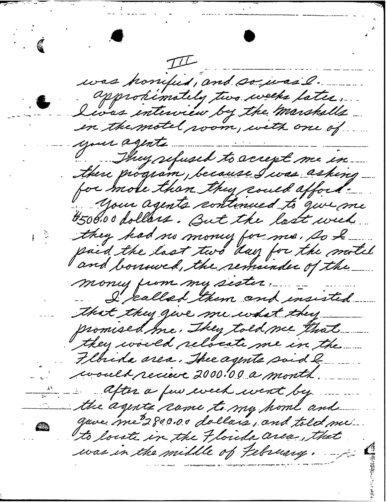 III
was horrified, and so was I.
approximately two weeks later,
I was interview by the Marshalls
in the motel room, with one of
your agents
They refused to accept me in
there program, because I was asking
for more than they could afford.
Your agents continued to give me
$500.00 dollars. But the last week
they had no money for me. So I
paid the last two day for the motel
and borrowed, the remainder of the
money from my sister.
I called them and insisted
that they give me what they
promised me. They told me that
they would relocate me in the
Florida area. The agents said I
would recieve 2000.00 a month.
After a few week went by
the agents came to my home and
gave me $2800.00 dollars, and told me
to locate in the Florida area, that
was in the middle of February.